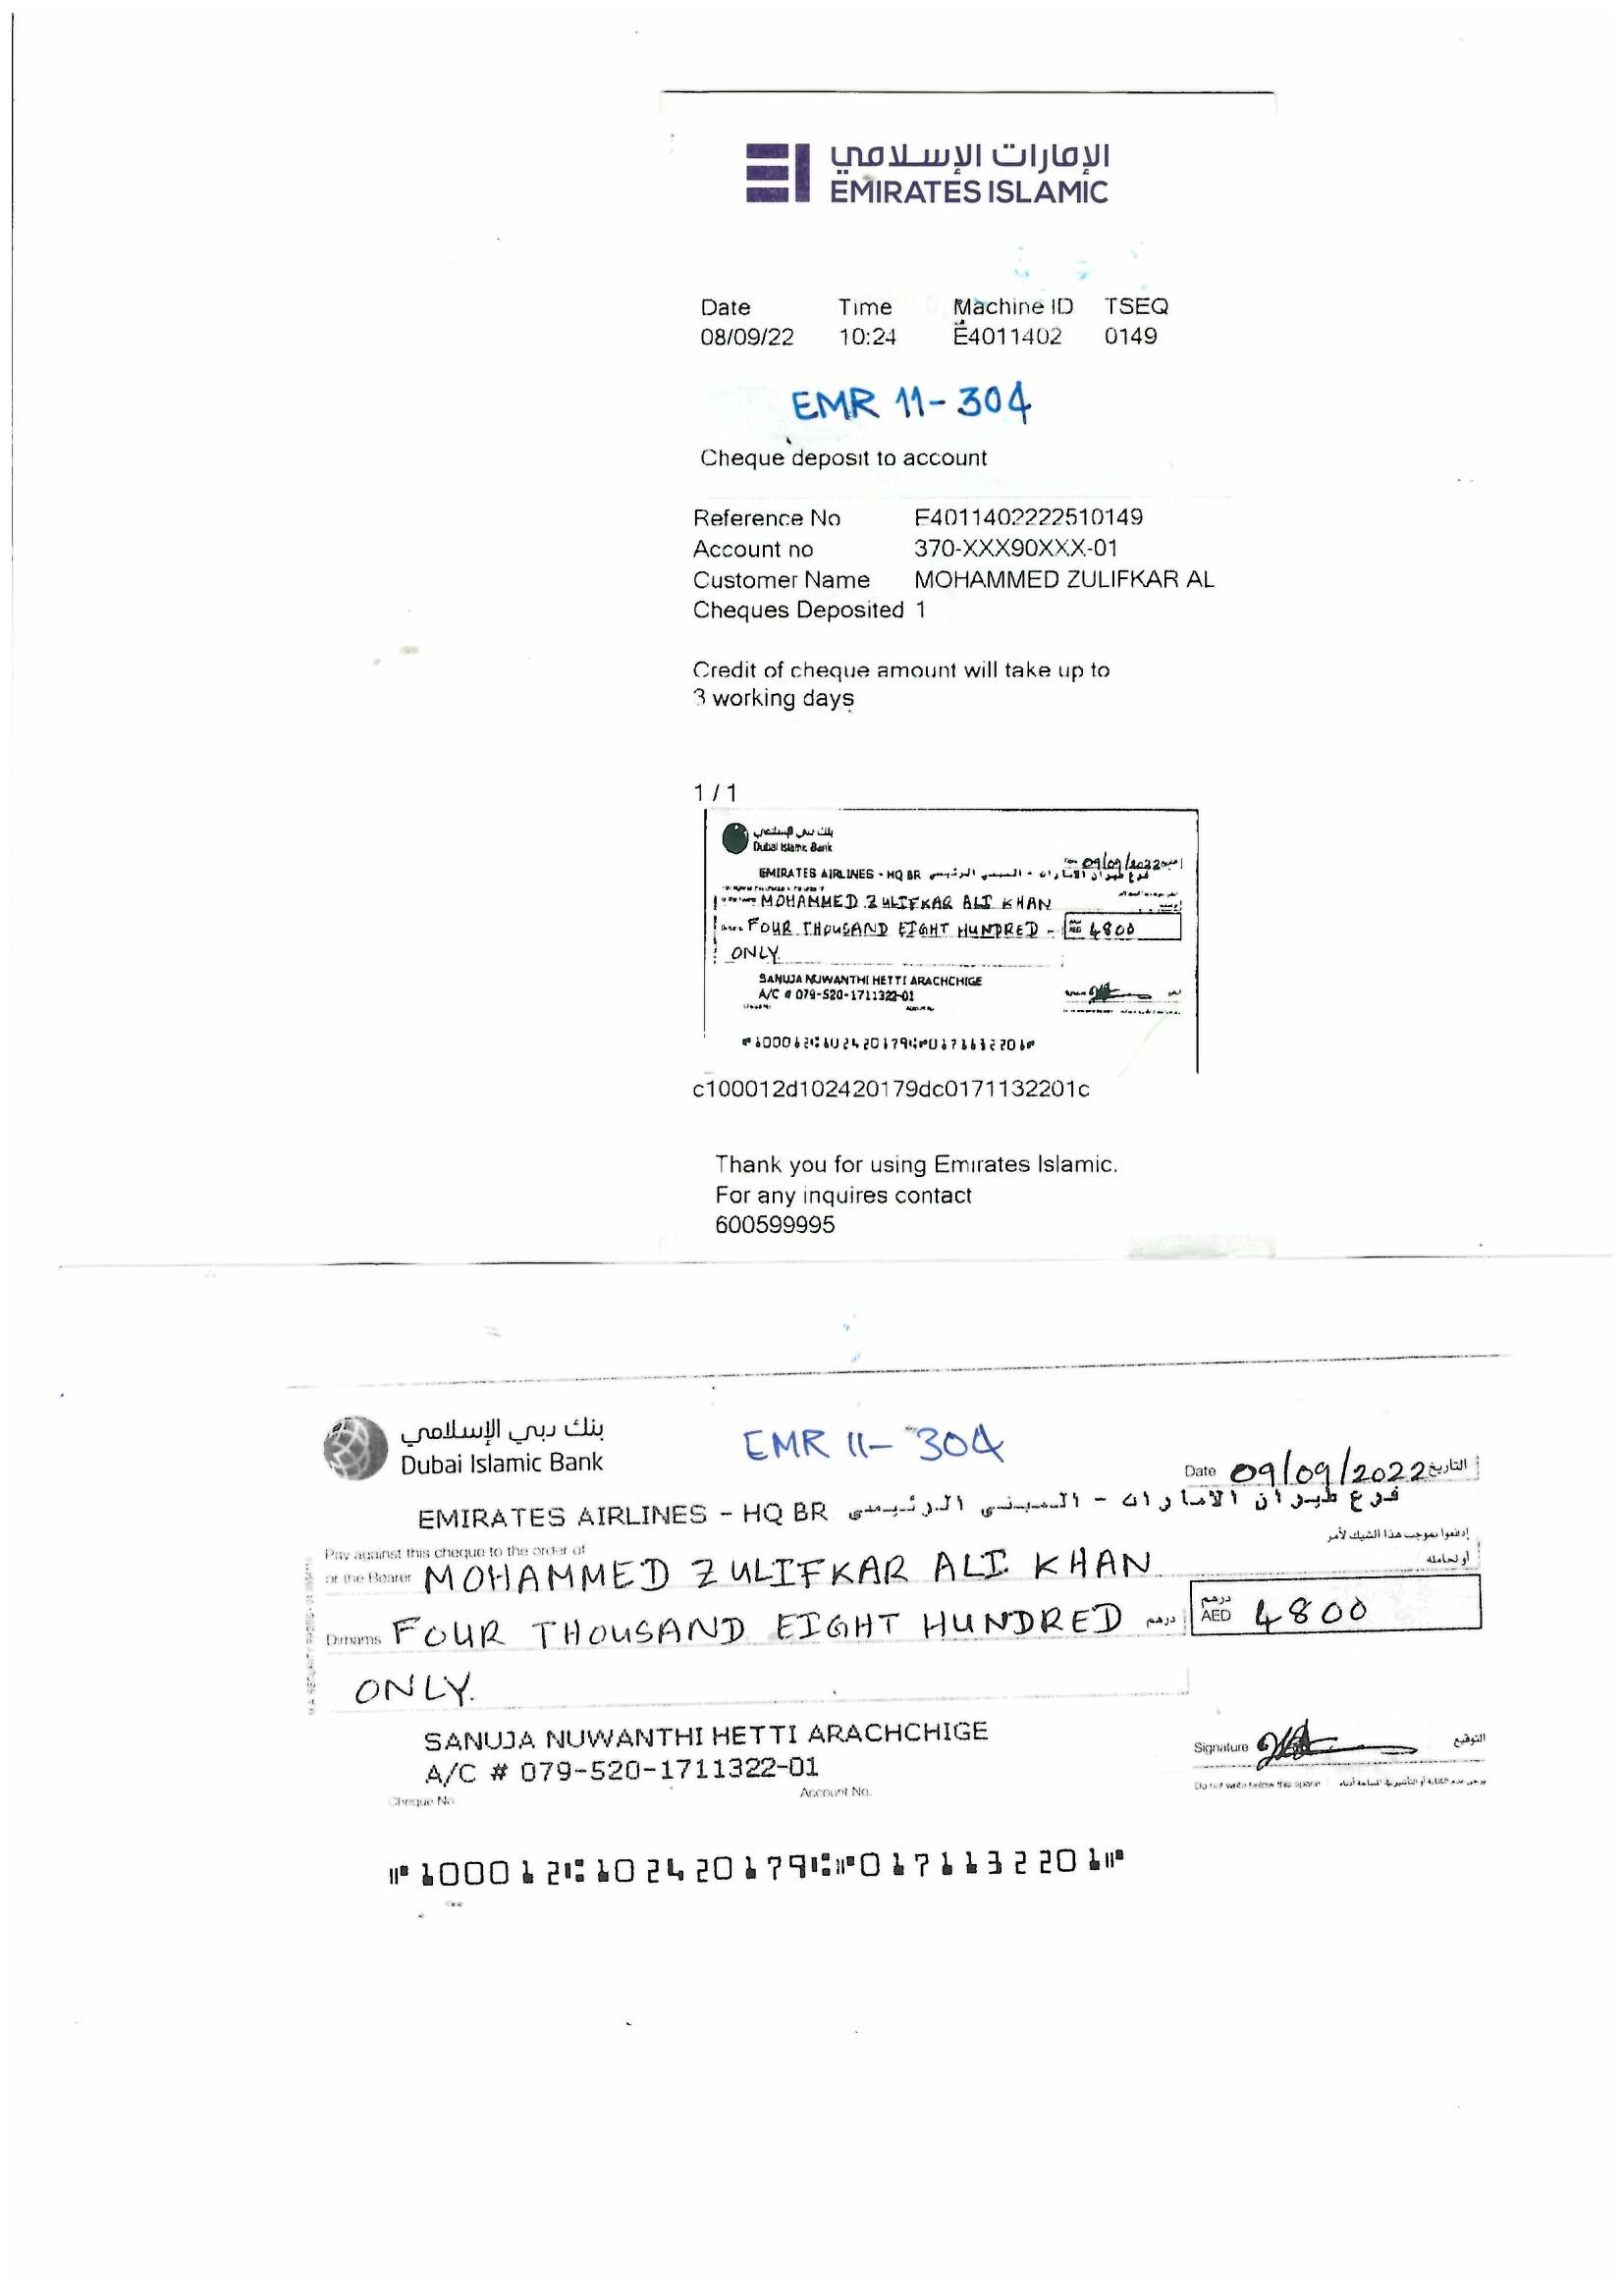 الإمارات الإسلامي
EMIRATES ISLAMIC
Date Time Machine ID TSEQ
08/09/22 10:24 E4011402 0149
EMR 11-304
Cheque deposit to account
Reference No E4011402222510149
Account no 370-XXX90XXX-01
Customer Name MOHAMMED ZULIFKAR AL
Cheques Deposited 1
Credit of cheque amount will take up to
3 working days
1 / 1
بنك دبي الإسلامي
Dubai Islamic Bank
09/09/2022
EMIRATES AIRLINES - HQ BR فرع طيران الامارات - المبنى الرئيسي
MOHAMMED ZULIFKAR ALI KHAN
FOUR THOUSAND EIGHT HUNDRED - AED 4800
ONLY
SANUJA NUWANTHI HETTI ARACHCHIGE
A/C # 079-520-1711322-01
⑈100012⑆102420179⑆⑈0171132201⑈
c100012d102420179dc0171132201c
Thank you for using Emirates Islamic.
For any inquires contact
600599995
بنك دبي الإسلامي
Dubai Islamic Bank
EMR 11- 304
Date 09/09/2022 التاريخ
EMIRATES AIRLINES - HQ BR فرع طيران الامارات - المبنى الرئيسي
Pay against this cheque to the order of إدفعوا بموجب هذا الشيك لأمر
or the Bearer MOHAMMED ZULIFKAR ALI KHAN أو لحامله
Dirhams FOUR THOUSAND EIGHT HUNDRED درهم درهم AED 4800
ONLY.
SANUJA NUWANTHI HETTI ARACHCHIGE
A/C # 079-520-1711322-01
Signature التوقيع
Cheque No. Account No.
Do not write below this space يرجى عدم الكتابة أو التأشير في المساحة أدناه
⑈100012⑆102420179⑆⑈0171132201⑈